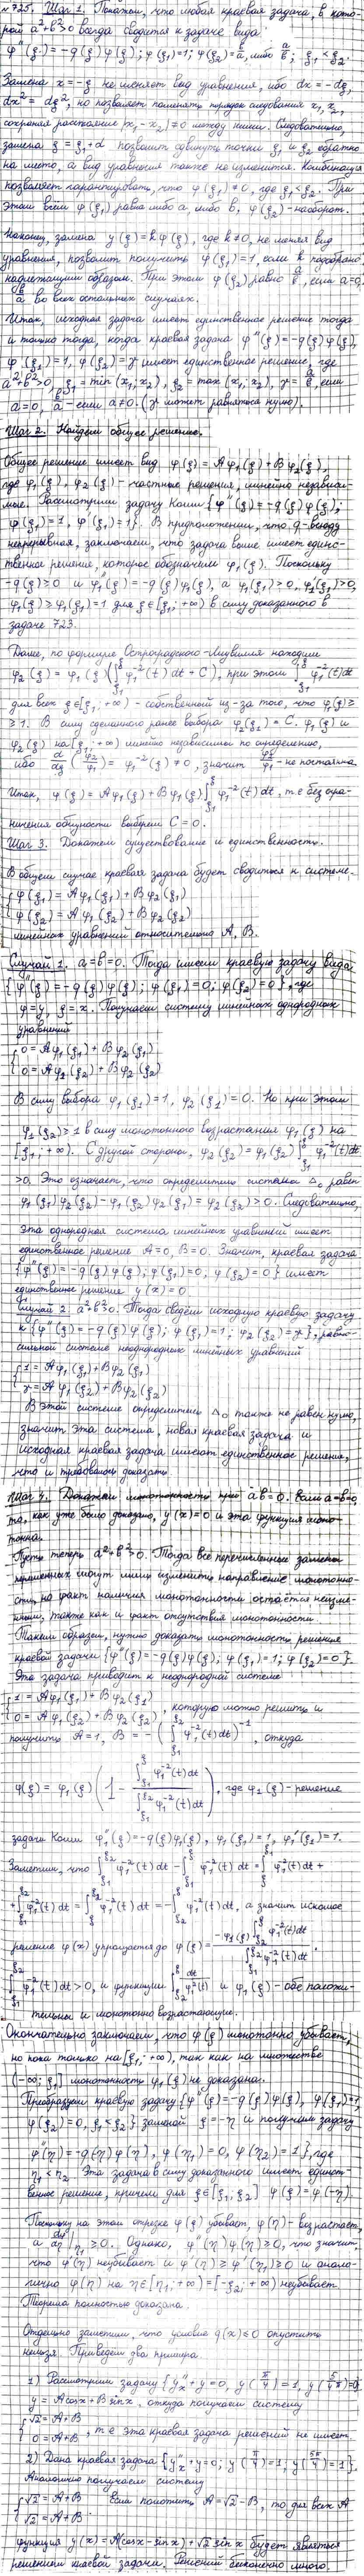 №725. Шаг 1. Покажем, что любая краевая задача, в кото-
рой a²+b²>0 всегда сводится к задаче вида:
φ''(ξ)=-q(ξ)φ(ξ); φ(ξ₁)=1; φ(ξ₂)=b/a, либо a/b; ξ₁<ξ₂.
Замена x=-ξ не меняет вид уравнения, ибо dx=-dξ,
dx²=dξ², но позволяет поменять порядок следования x₁, x₂,
сохраняя расстояние |x₁-x₂|≠0 между ними. Следовательно,
замена ξ=ξ₁+d позволит сдвинуть точки ξ₁ и ξ₂ обратно
на место, а вид уравнения также не изменится. Комбинация
позволяет гарантировать, что φ(ξ₁)≠0, где ξ₁<ξ₂. При
этом всём φ(ξ₁) равна либо a, либо b, φ(ξ₂)-наоборот.
Наконец, замена y(ξ)=kφ(ξ), где k≠0, не меняя вид
уравнения, позволит получить φ(ξ₁)=1, если k подобрано
надлежащим образом. При этом φ(ξ₂) равно a/b, если a=0,
b/a во всех остальных случаях.
Итак, исходная задача имеет единственное решение тогда
и только тогда, когда краевая задача φ''(ξ)=-q(ξ)φ(ξ),
φ(ξ₁)=1, φ(ξ₂)=γ имеет единственное решение, где
a²+b²>0, ξ₁=min(x₁,x₂), ξ₂=max(x₁;x₂), γ=a/b, если
a=0, b/a-если a≠0. (γ может равняться нулю).
Шаг 2. Найдём общее решение.
Общее решение имеет вид φ(ξ)=Aφ₁(ξ)+Bφ₂(ξ),
где φ₁(ξ), φ₂(ξ)-частные решения, линейно независи-
мые. Рассмотрим задачу Коши {φ''(ξ)=-q(ξ)φ(ξ),
φ(ξ₁)=1, φ'(ξ₁)=1}. В предположении, что q-всюду
непрерывная, заключаем, что задача выше имеет единс-
твенное решение, которое обозначим φ₁(ξ). Поскольку
-q(ξ)≥0 и φ₁''(ξ)=-q(ξ)φ₁(ξ), а φ₁(ξ₁)>0, φ₁'(ξ₁)>0,
φ₁(ξ)≥φ₁(ξ₁)=1 для ξ∈[ξ₁;+∞) в силу доказанного в
задаче 723.
Далее, по формуле Остроградского-Лиувилля находим
φ₂(ξ)=φ₁(ξ)(∫_{ξ₁}^{ξ}φ₁⁻²(t)dt+C), при этом ∫_{ξ₁}^{ξ}φ₁⁻²(t)dt
для всех ξ∈[ξ₁;+∞)-собственный из-за того, что φ₁(ξ)≥
≥1. В силу сделанного ранее выбора φ₂(ξ₁)=C. φ₁(ξ) и
φ₂(ξ) на [ξ₁;+∞) линейно независимы по определению,
ибо d/dξ(φ₂/φ₁)=φ₁⁻²(ξ)≠0, значит φ₂/φ₁-не постоянна.
Итак, φ(ξ)=Aφ₁(ξ)+Bφ₁(ξ)∫_{ξ₁}^{ξ}φ₁⁻²(t)dt, т.е без огра-
ничения общности выберем C=0.
Шаг 3. Докажем существование и единственность.
В общем случае краевая задача будет сводиться к системе
{φ(ξ₁)=Aφ₁(ξ₁)+Bφ₂(ξ₁)
{φ(ξ₂)=Aφ₁(ξ₂)+Bφ₂(ξ₂)
линейных уравнений относительно A, B.
Случай 1. a=b=0. Тогда имеем краевую задачу вида
{φ''(ξ)=-q(ξ)φ(ξ); φ(ξ₁)=0; φ(ξ₂)=0}, где
φ=y, ξ=x. Получаем систему линейных однородных
уравнений
{0=Aφ₁(ξ₁)+Bφ₂(ξ₁)
{0=Aφ₁(ξ₂)+Bφ₂(ξ₂)
В силу выбора φ₁(ξ₁)=1, φ₂(ξ₁)=0. Но при этом
φ₁(ξ₂)≥1 в силу монотонного возрастания φ₁(ξ) на
[ξ₁;+∞). С другой стороны, φ₂(ξ₂)=φ₁(ξ₂)∫_{ξ₁}^{ξ₂}φ₁⁻²(t)dt
>0. Это означает, что определитель системы Δ₀ равен
φ₁(ξ₁)φ₂(ξ₂)-φ₁(ξ₂)φ₂(ξ₁)=φ₂(ξ₂)>0. Следовательно,
эта однородная система линейных уравнений имеет
единственное решение A=0, B=0. Значит, краевая задача
{φ''(ξ)=-q(ξ)φ(ξ); φ(ξ₁)=0; φ(ξ₂)=0} имеет
единственное решение y(x)=0.
Случай 2. a²+b²>0. Тогда сведём исходную краевую задачу
к {φ''(ξ)=-q(ξ)φ(ξ); φ(ξ₁)=1; φ(ξ₂)=γ}, равно-
сильной системе неоднородных линейных уравнений
{1=Aφ₁(ξ₁)+Bφ₂(ξ₁)
{γ=Aφ₁(ξ₂)+Bφ₂(ξ₂)
В этой системе определитель Δ₀ также не равен нулю,
значит эта система, новая краевая задача и
исходная краевая задача имеют единственное решение,
что и требовалось доказать.
Шаг 4. Докажем монотонность при ab=0. Если a=b=0,
то, как уже было доказано, y(x)=0 и эта функция моно-
тонна.
Пусть теперь a²+b²>0. Тогда все перечисленные замены
переменных могут лишь изменить направление монотонно-
сти, но факт наличия монотонности остаётся неизме-
нным, также как и факт отсутствия монотонности.
Таким образом, нужно доказать монотонность решения
краевой задачи {φ''(ξ)=-q(ξ)φ(ξ); φ(ξ₁)=1; φ(ξ₂)=0}.
Эта задача приводит к неоднородной системе
{1=Aφ₁(ξ₁)+Bφ₂(ξ₁)
{0=Aφ₁(ξ₂)+Bφ₂(ξ₂), которую можно решить и
получить A=1, B=-(∫_{ξ₁}^{ξ₂}φ₁⁻²(t)dt)⁻¹, откуда
φ(ξ)=φ₁(ξ)(1-∫_{ξ₁}^{ξ}φ₁⁻²(t)dt/∫_{ξ₁}^{ξ₂}φ₁⁻²(t)dt), где φ₁(ξ)-решение
задачи Коши φ₁''(ξ)=-q(ξ)φ₁(ξ), φ₁(ξ₁)=1, φ₁'(ξ₁)=1.
Заметим, что ∫_{ξ₁}^{ξ₂}φ₁⁻²(t)dt-∫_{ξ₁}^{ξ}φ₁⁻²(t)dt=∫_{ξ₁}^{ξ₂}φ₁⁻²(t)dt+
+∫_{ξ}^{ξ₁}φ₁⁻²(t)dt=∫_{ξ}^{ξ₂}φ₁⁻²(t)dt=-∫_{ξ₂}^{ξ}φ₁⁻²(t)dt, а значит искомое
решение φ(x) упрощается до φ(ξ)=-φ₁(ξ)∫_{ξ₂}^{ξ}φ₁⁻²(t)dt/∫_{ξ₁}^{ξ₂}φ₁⁻²(t)dt.
∫_{ξ₁}^{ξ₂}φ₁⁻²(t)dt>0, и функции ∫_{ξ₂}^{ξ}dt/φ₁²(t) и φ₁(ξ)-обе положи-
тельны и монотонно возрастающие.
Окончательно заключаем, что φ(ξ) монотонно убывает,
но пока только на [ξ₁;+∞), так как на множестве
(-∞;ξ₁] монотонность φ₁(ξ) не доказана.
Преобразуем краевую задачу {φ''(ξ)=-q(ξ)φ(ξ), φ(ξ₁)=1,
φ(ξ₂)=0, ξ₁<ξ₂} заменой ξ=-η и получим задачу
φ''(η)=-q(η)φ(η), φ(η₁)=0, φ(η₂)=1}, где
η₁<η₂. Эта задача в силу доказанного имеет единст-
венное решение, причём для ξ∈[ξ₁,ξ₂] φ(ξ)=φ(-η).
Поскольку на этом отрезке φ(ξ) убывает, φ(η)-возрастает,
а dφ/dη|η₁≥0. Однако, φ''(η)φ(η)≥0, что значит,
что φ'(η) неубывает и φ'(η)≥φ'(η₁)≥0 и анало-
гично φ(η) на η∈[η₁,+∞)=[-ξ₂,+∞) неубывает.
Теорема полностью доказана.
Отдельно заметим, что условие q(x)≤0 опустить
нельзя. Приведём два примера.
1) Рассмотрим задачу {y''ₓ+y=0, y(π/4)=1, y(5/4π)=0}
y=Acosx+Bsinx, откуда получаем систему
{√2=A+B
{0=A+B, т.е эта краевая задача решений не имеет.
2) Дана краевая задача {y''ₓ+y=0; y(π/4)=1, y(5π/4)=1}.
Аналогично получаем систему
{√2=A+B
{√2=A+B. Если положить A=√2-B, то для всех A
функция y(x)=A(cosx-sinx)+√2sinx будет являться
решением краевой задачи. Решений бесконечно много.